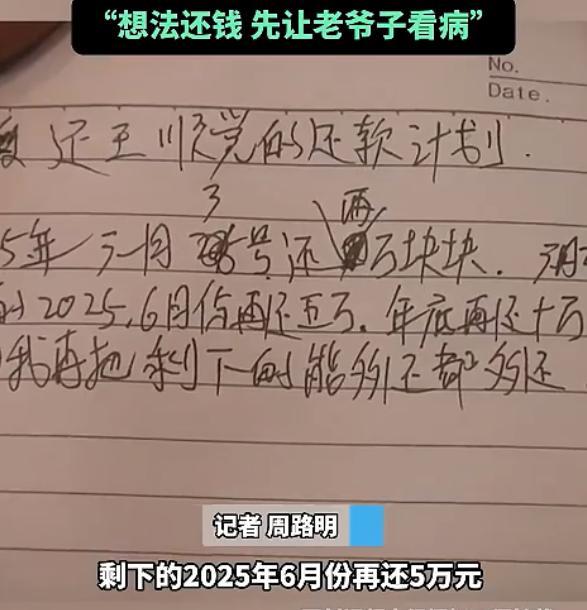 “想法还钱 先让老爷子看病”
No.
Date.
还王顺党的还款计划.
3 两
5年元月号还万块块.
2025.6月份再还五万.年底再还十万
我再把剩下的能多还都多还
记者 周路明
剩下的2025年6月份再还5万元